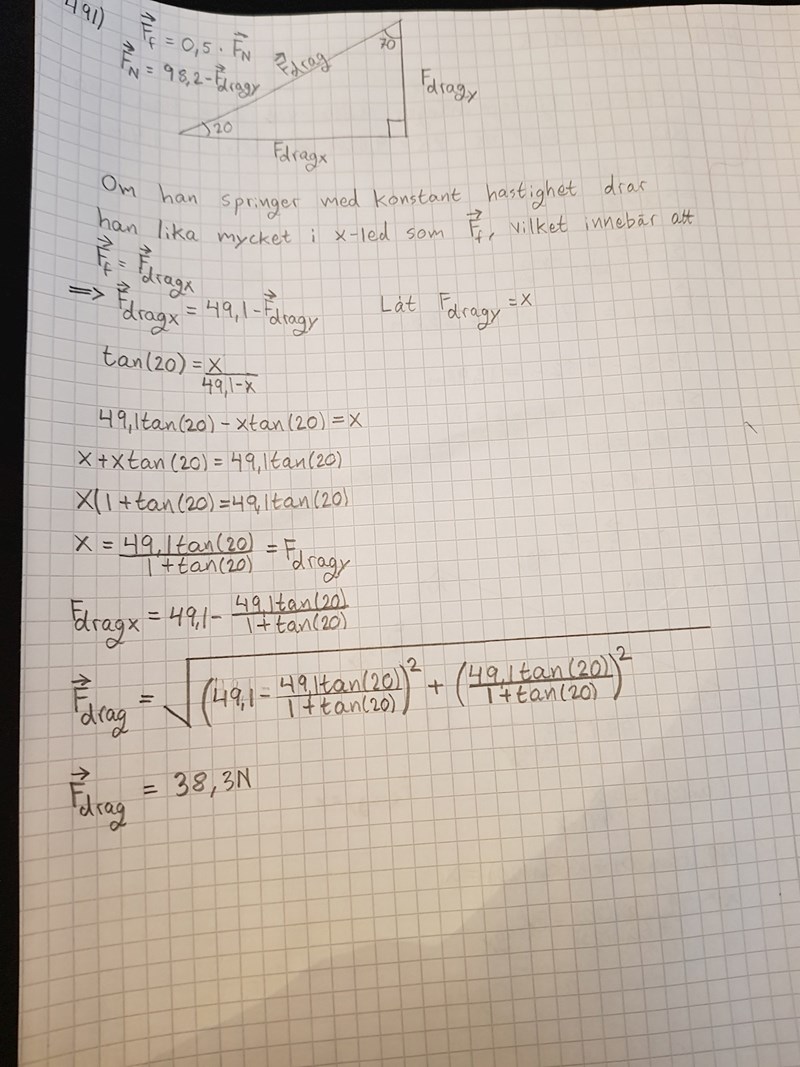 491)
F⃗f = 0,5 · F⃗N
F⃗N = 98,2 - F⃗dragy
F⃗drag
70
Fdragy
20
Fdragx
Om han springer med konstant hastighet drar
han lika mycket i x-led som F⃗f, vilket innebär att
F⃗f = F⃗dragx
=> F⃗dragx = 49,1 - F⃗dragy Låt Fdragy = x
tan(20) = x/(49,1-x)
49,1tan(20) - xtan(20) = x
x + xtan(20) = 49,1tan(20)
x(1 + tan(20) = 49,1tan(20)
x = 49,1tan(20)/1+tan(20) = Fdragy
Fdragx = 49,1 - 49,1tan(20)/1+tan(20)
F⃗drag = √(49,1 - 49,1tan(20)/1+tan(20))² + (49,1tan(20)/1+tan(20))²
F⃗drag = 38,3N